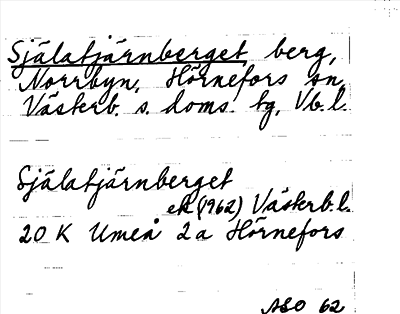 Själatjärnberget berg,
Norrbyn, Hörnefors sn,
Västerb. s. doms. tg, Vb. l.
Själatjärnberget
ek (1962) Västerb. l.
20 K Umeå 2 a Hörnefors
ASO 62